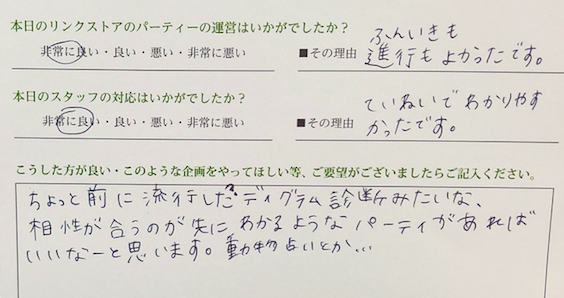 本日のリンクストアのパーティーの運営はいかがでしたか？
非常に良い・良い・悪い・非常に悪い
■その理由
ふんいきも
進行もよかったです。
本日のスタッフの対応はいかがでしたか？
非常に良い・良い・悪い・非常に悪い
■その理由
ていねいでわかりやす
かったです。
こうした方が良い・このような企画をやってほしい等、ご要望がございましたらご記入ください。
ちょっと前に流行したディグラム診断みたいな、
相性が合うのが先にわかるようなパーティがあれば
いいなーと思います。動物占いとか...